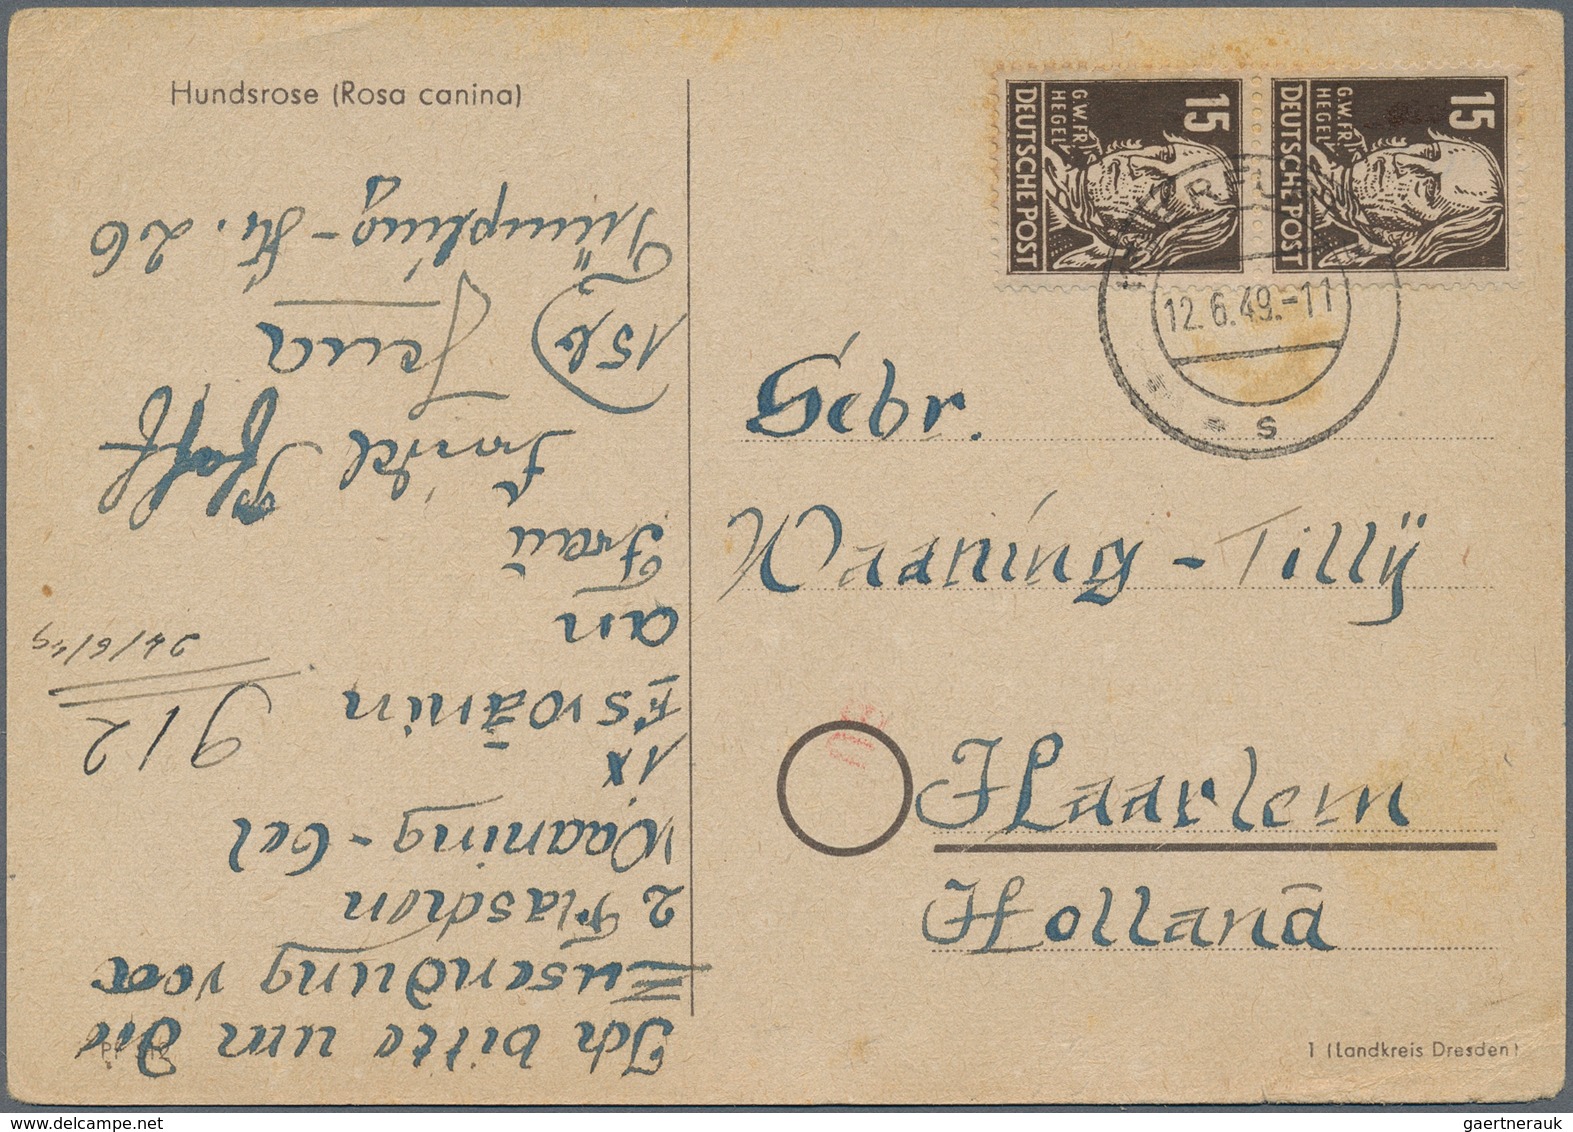 Hundsrose (Rosa canina)
15
G.W.FR.
HEGEL
DEUTSCHE POST
15
G.W.FR.
HEGEL
DEUTSCHE POST
12.6.49.-11
s
Gebr.
Waaning-Tilly
Haarlem
Holland
1 (Landkreis Dresden)
Ich bitte um die
Zusendung von
2 Flaschen
Waaning-Oel
1x
912
24/6/49
an
Frau
15b
Jena
Str. 26
gaertnerauk